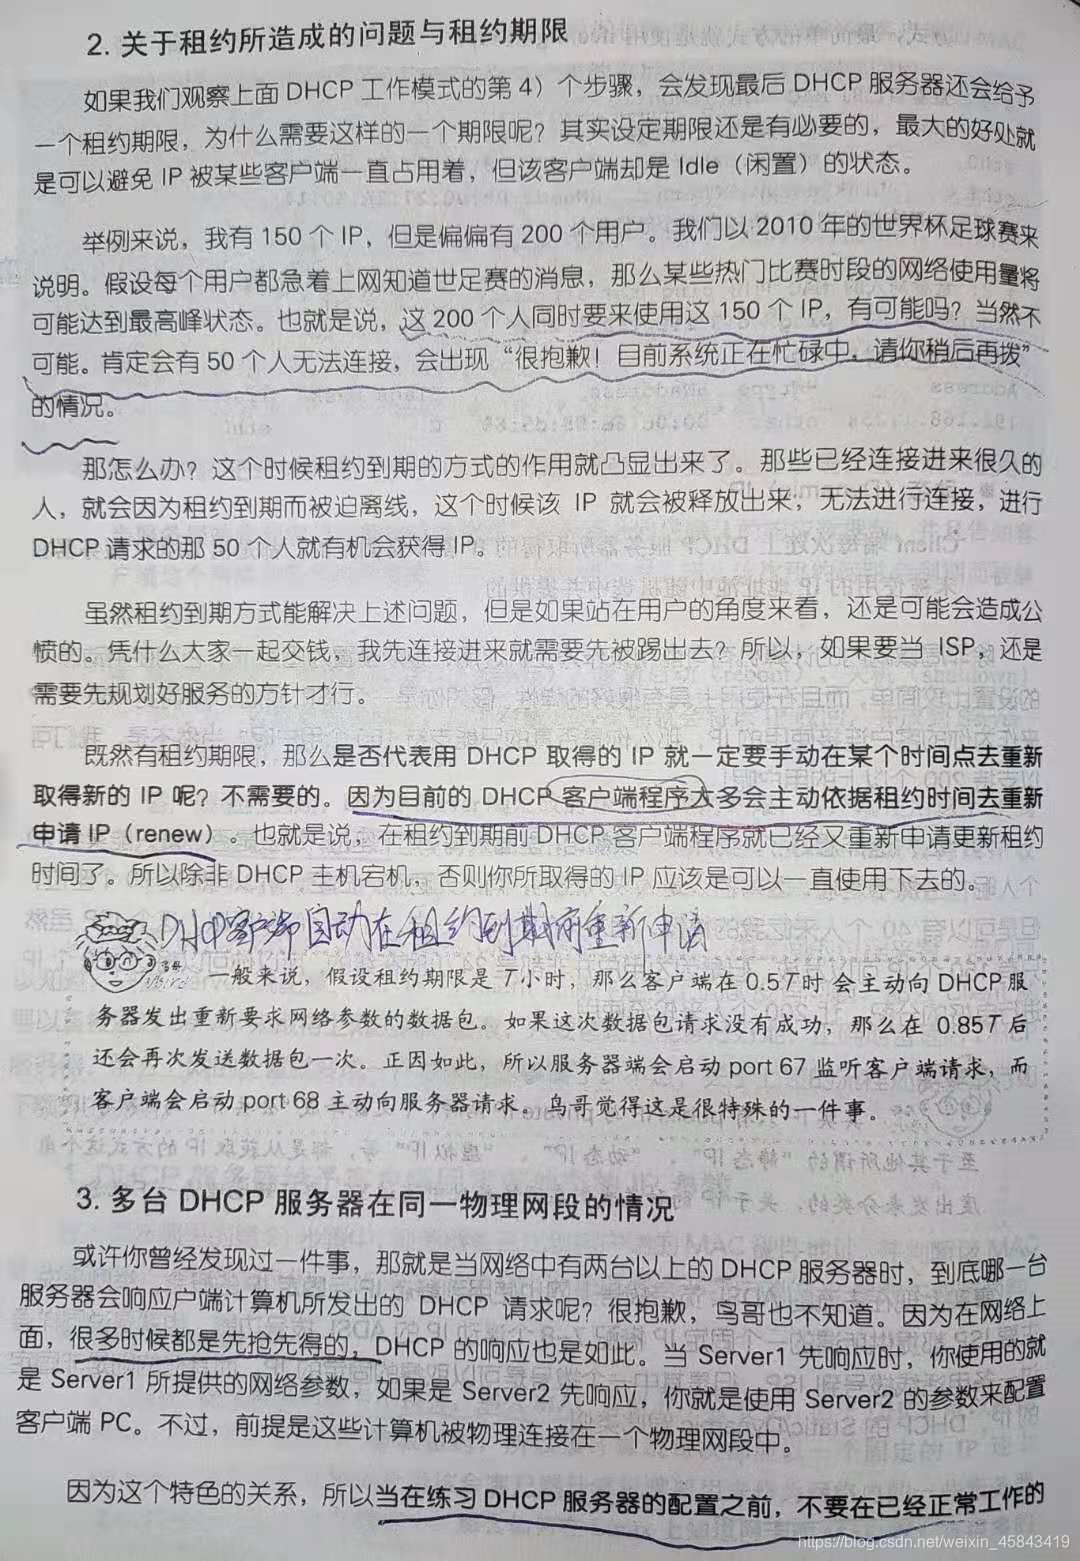 2. 关于租约所造成的问题与租约期限
如果我们观察上面 DHCP 工作模式的第 4）个步骤，会发现最后 DHCP 服务器还会给予
一个租约期限，为什么需要这样的一个期限呢？其实设定期限还是有必要的，最大的好处就
是可以避免 IP 被某些客户端一直占用着，但该客户端却是 Idle（闲置）的状态。
举例来说，我有 150 个 IP，但是偏偏有 200 个用户。我们以 2010 年的世界杯足球赛来
说明。假设每个用户都急着上网知道世足赛的消息，那么某些热门比赛时段的网络使用量将
可能达到最高峰状态。也就是说，这 200 个人同时要来使用这 150 个 IP，有可能吗？当然不
可能。肯定会有 50 个人无法连接，会出现“很抱歉！目前系统正在忙碌中，请你稍后再拨”
的情况。
那怎么办？这个时候租约到期的方式的作用就凸显出来了。那些已经连接进来很久的
人，就会因为租约到期而被迫离线，这个时候该 IP 就会被释放出来，无法进行连接，进行
DHCP 请求的那 50 个人就有机会获得 IP。
虽然租约到期方式能解决上述问题，但是如果站在用户的角度来看，还是可能会造成公
愤的。凭什么大家一起交钱，我先连接进来就需要先被踢出去？所以，如果要当 ISP，还是
需要先规划好服务的方针才行。
既然有租约期限，那么是否代表用 DHCP 取得的 IP 就一定要手动在某个时间点去重新
取得新的 IP 呢？不需要的。因为目前的 DHCP 客户端程序大多会主动依据租约时间去重新
申请 IP（renew）。也就是说，在租约到期前 DHCP 客户端程序就已经又重新申请更新租约
时间了。所以除非 DHCP 主机宕机，否则你所取得的 IP 应该是可以一直使用下去的。
DHCP客户端自动在租约到期前重新申请
一般来说，假设租约期限是 T 小时，那么客户端在 0.5T 时 会主动向 DHCP 服
务器发出重新要求网络参数的数据包。如果这次数据包请求没有成功，那么在 0.85T 后
还会再次发送数据包一次。正因如此，所以服务器端会启动 port 67 监听客户端请求，而
客户端会启动 port 68 主动向服务器请求。鸟哥觉得这是很特殊的一件事。
3. 多台 DHCP 服务器在同一物理网段的情况
或许你曾经发现过一件事，那就是当网络中有两台以上的 DHCP 服务器时，到底哪一台
服务器会响应户端计算机所发出的 DHCP 请求呢？很抱歉，鸟哥也不知道。因为在网络上
面，很多时候都是先抢先得的，DHCP 的响应也是如此。当 Server1 先响应时，你使用的就
是 Server1 所提供的网络参数，如果是 Server2 先响应，你就是使用 Server2 的参数来配置
客户端 PC。不过，前提是这些计算机被物理连接在一个物理网段中。
因为这个特色的关系，所以当在练习 DHCP 服务器的配置之前，不要在已经正常工作的
https://blog.csdn.net/weixin_45843419